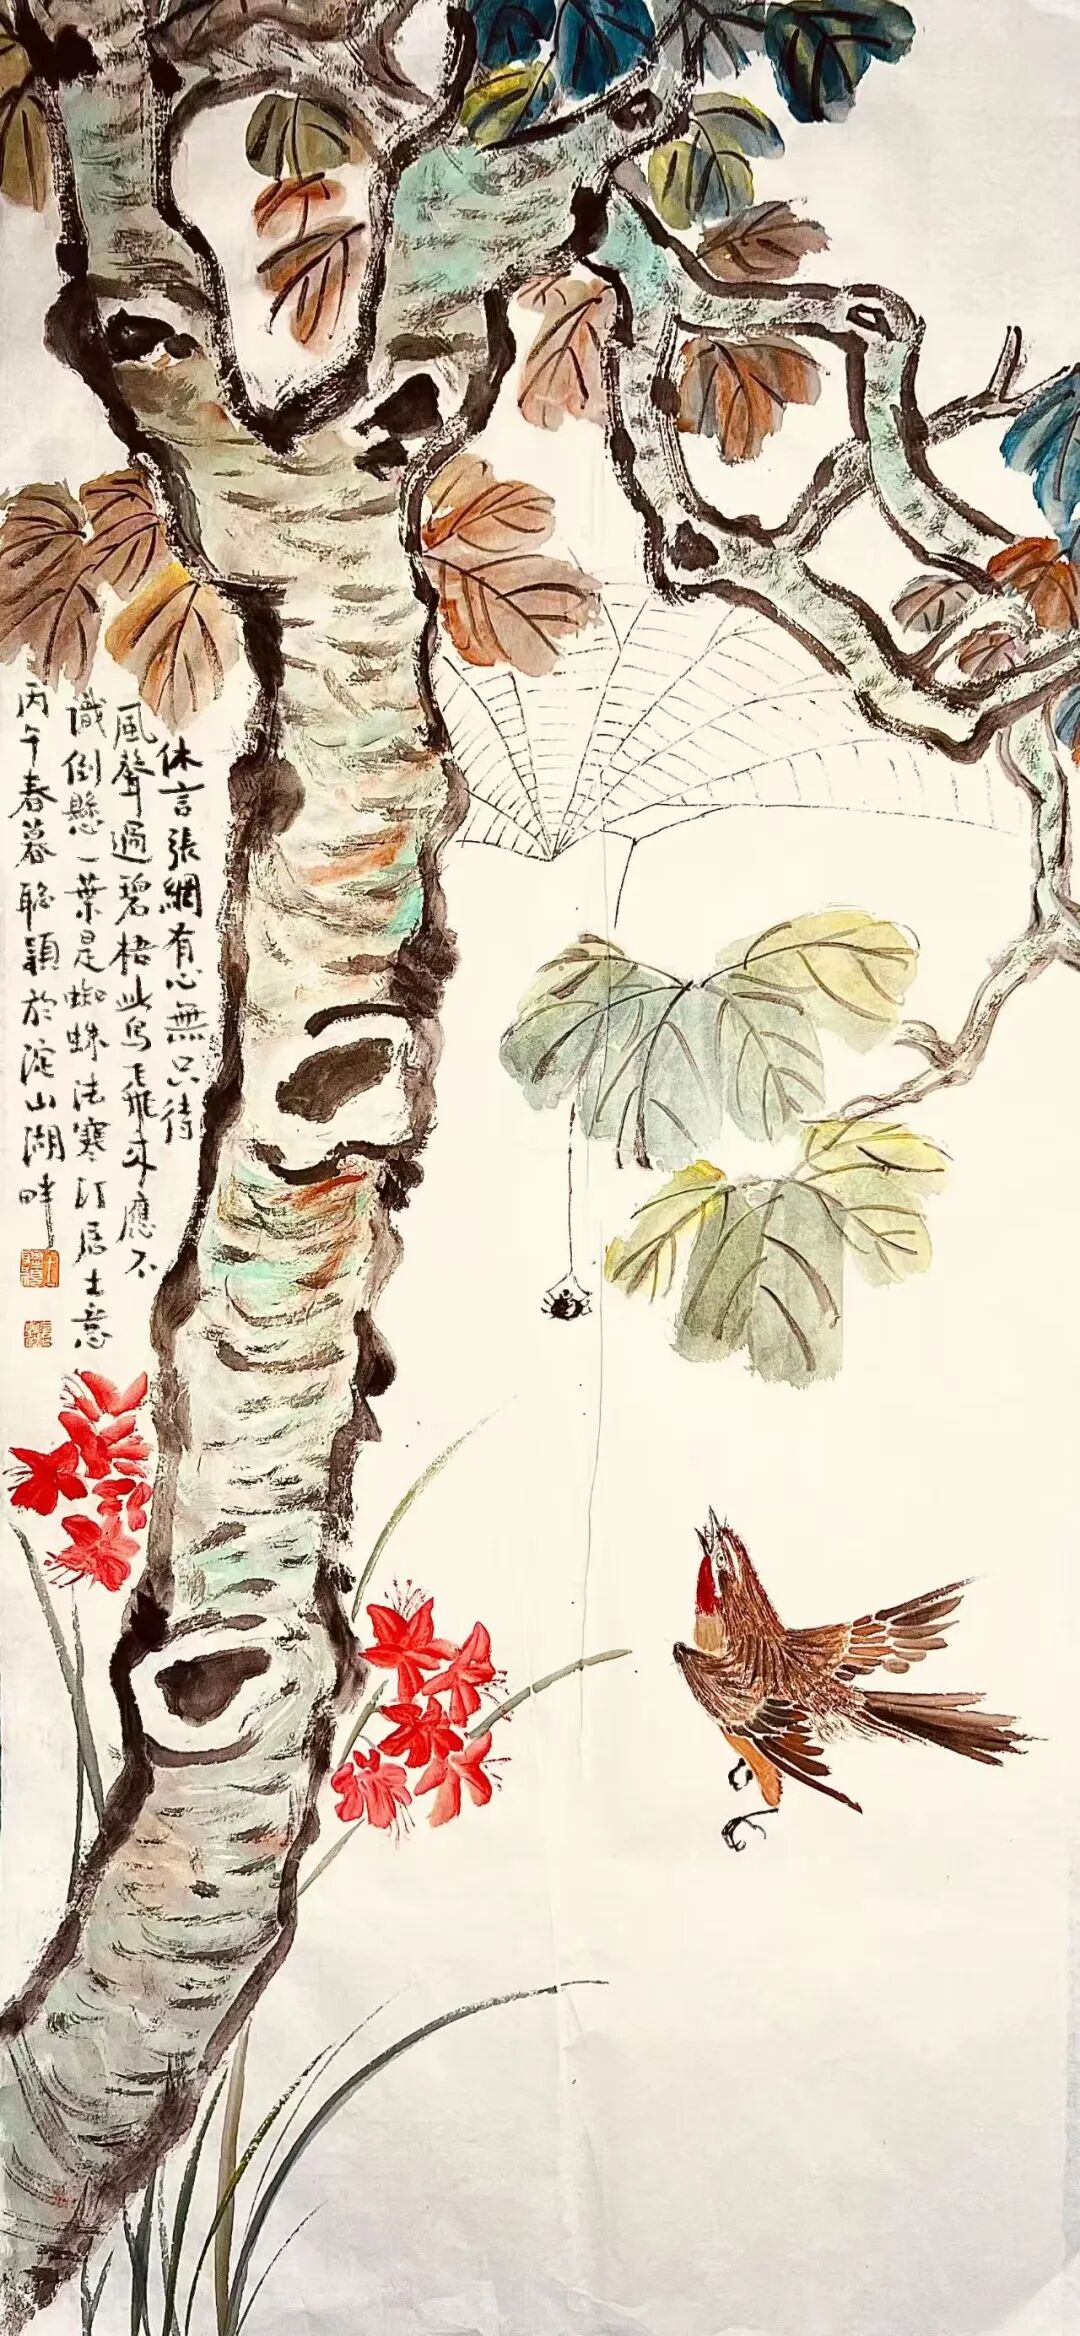 休言張網有心無只待
風聲過碧梧此鳥飛來應不
識倒懸一葉是蜘蛛法寒汀居士意
丙午春暮聪穎於淀山湖畔